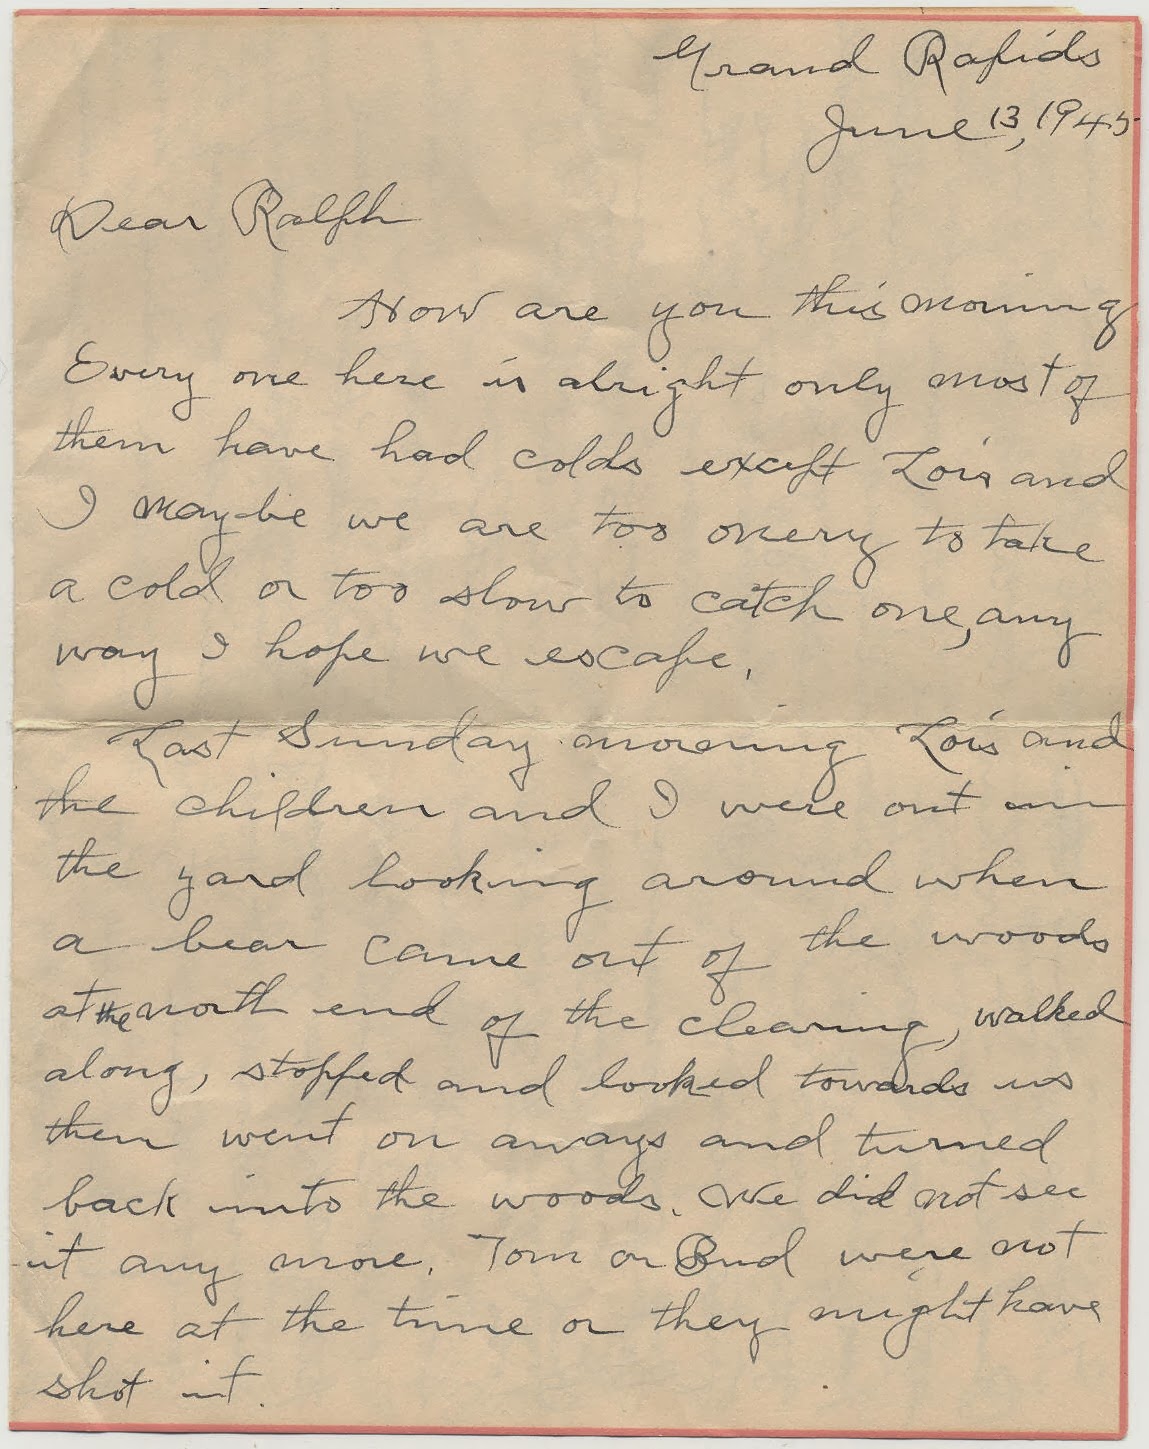 Grand Rapids
June 13, 1945
Dear Ralph
How are you this morning
Every one here is alright only most of
them have had colds except Lois and
I may-be we are too onery to take
a cold or too slow to catch one, any
way I hope we escape.
Last Sunday morning Lois and
the children and I were out in
the yard looking around when
a bear came out of the woods
at the north end of the clearing, walked
along, stopped and looked towards us
then went on aways and turned
back into the woods. We did not see
it any more. Tom or Bud were not
here at the time or they might have
shot it.